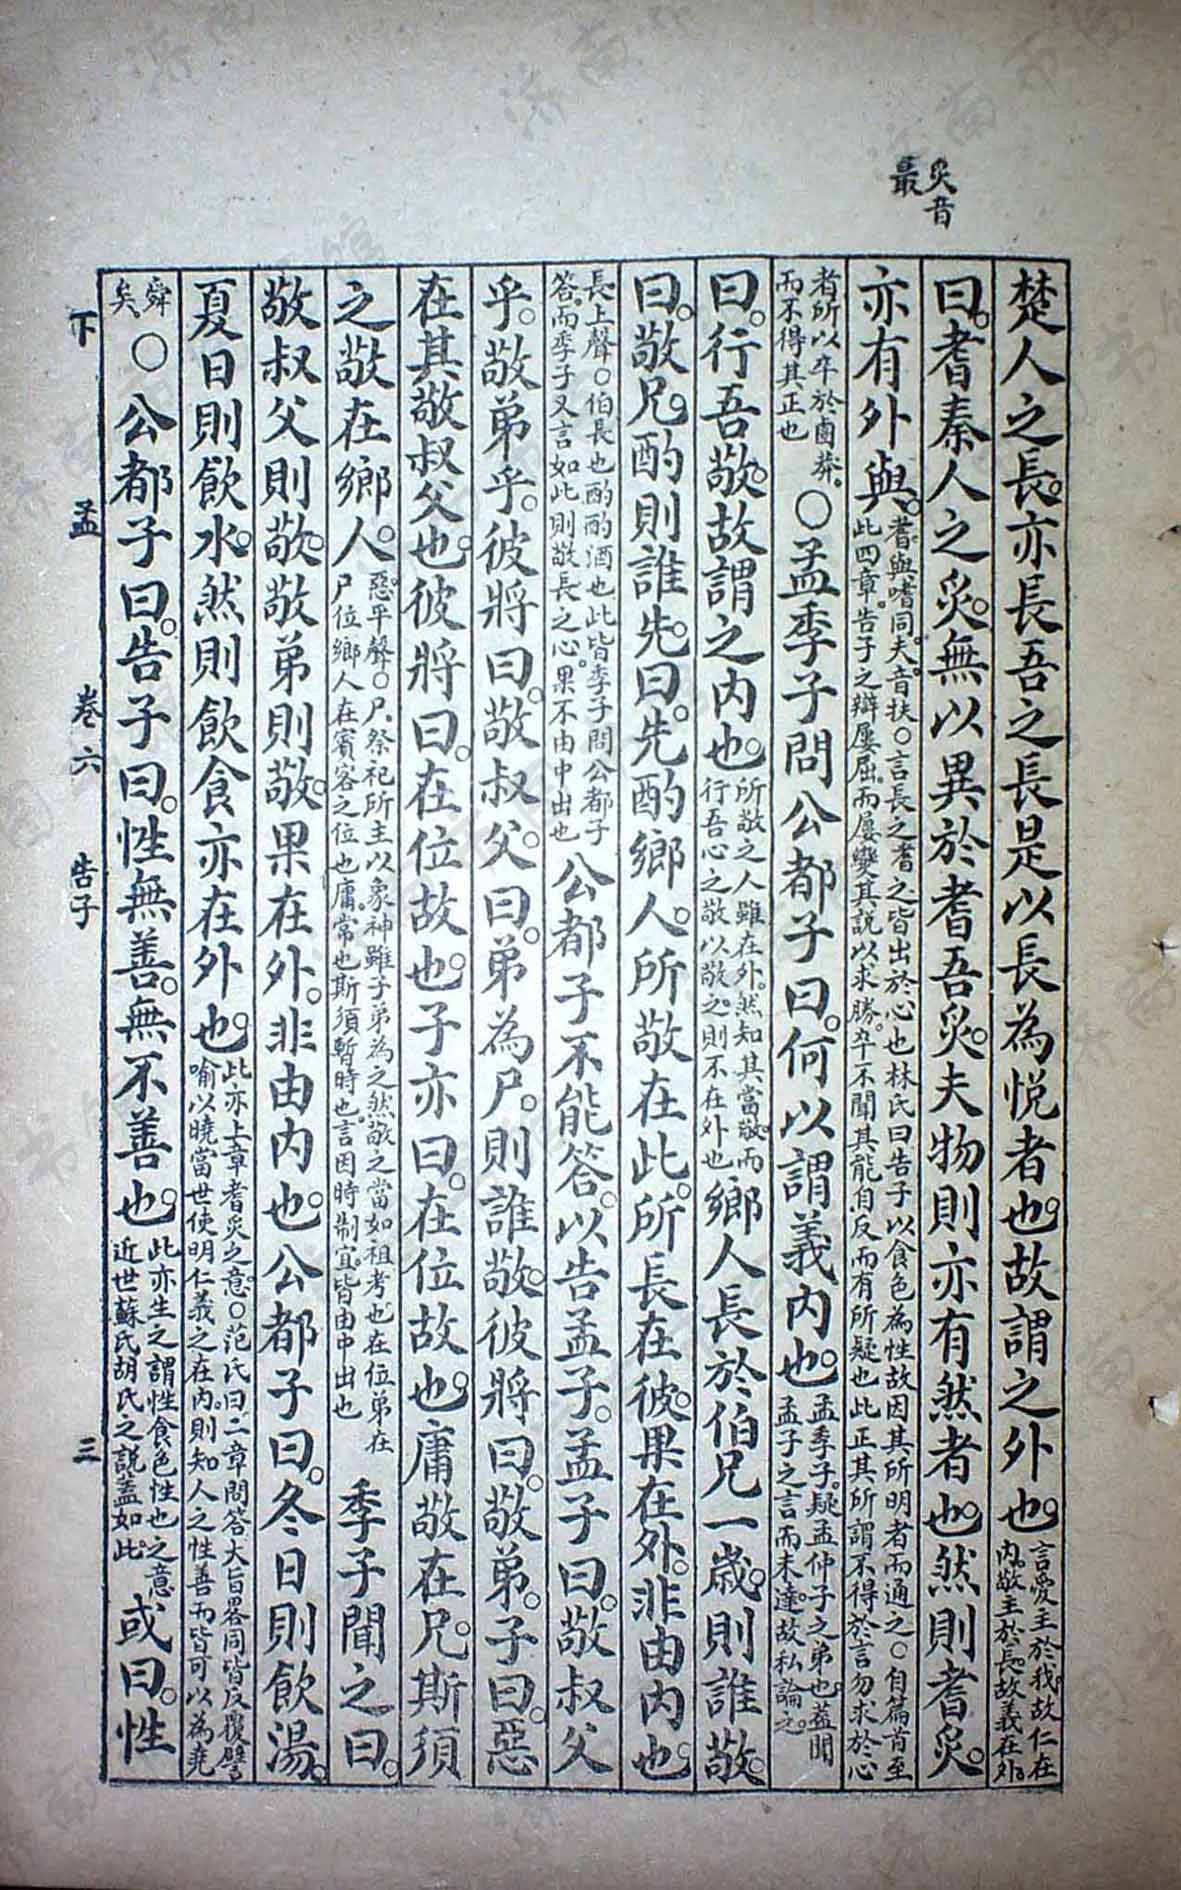 炙音
最
楚人之長。亦長吾之長。是以長為悅者也。故謂之外也。言愛主於我。故仁在內。敬主於長。故義在外。
曰。耆秦人之炙。無以異於耆吾炙。夫物則亦有然者也。然則耆炙。
亦有外與。耆。與嗜同。夫。音扶。○言長之耆之。皆出於心也。林氏曰告子以食色為性。故因其所明者而通之。○自篇首至此四章。告子之辯屢屈。而屢變其說以求勝。卒不聞其能自反而有所疑也。此正其所謂不得於言勿求於心
者。所以卒於鹵莽。而不得其正也○孟季子問公都子曰。何以謂義內也。孟季子。疑孟仲子之弟也。蓋聞孟子之言而未達。故私論之。
曰。行吾敬。故謂之內也。所敬之人雖在外。然知其當敬。而行吾心之敬以敬之。則不在外也鄉人長於伯兄一歲。則誰敬。
曰。敬兄。酌則誰先。曰。先酌鄉人。所敬在此。所長在彼。果在外。非由內也
長上聲。○伯。長也。酌。酌酒也。此皆季子問公都子答。而季子又言如此則敬長之心。果不由中出也公都子不能答。以告孟子。孟子曰。敬叔父
乎。敬弟乎。彼將曰。敬叔父。曰。弟為尸。則誰敬。彼將曰。敬弟。子曰。惡
在其敬叔父也。彼將曰。在位故也。子亦曰。在位故也。庸敬在兄。斯須
之敬在鄉人。惡。平聲。○尸。祭祀所主以象神。雖子弟為之。然敬之當如祖考也。在位。弟在尸位。鄉人在賓客之位也。庸。常也。斯須。暫時也。言因時制宜。皆由中出也季子聞之曰。
敬叔父則敬。敬弟則敬。果在外。非由內也。公都子曰。冬日則飲湯。
夏日則飲水。然則飲食亦在外也。此亦上章耆炙之意。○范氏曰二章問答。大旨畧同。皆反覆譬喻以曉當世。使明仁義之在內。則知人之性善。而皆可以為堯
舜矣○公都子曰。告子曰。性無善。無不善也。此亦生之謂性食色性也之意。近世蘇氏胡氏之說蓋如此。或曰。性
下 孟 卷六 告子 三